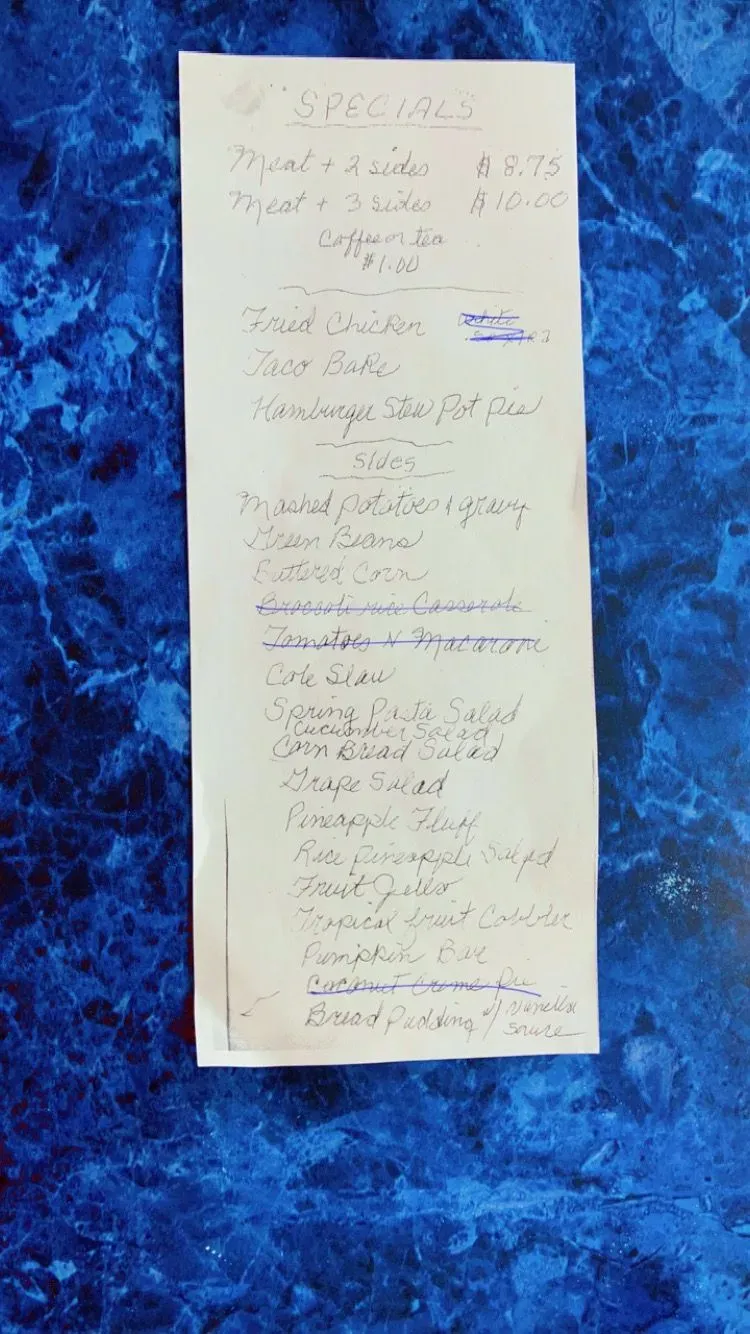 SPECIALS
Meat + 2 sides $8.75
Meat + 3 sides $10.00
Coffee or tea
$1.00
Fried Chicken white
Taco Bake
Hamburger Stew Pot Pie
Sides
Mashed potatoes & gravy
Green Beans
Buttered Corn
Broccoli rice Casserole
Tomatoes N Macaroni
Cole Slaw
Spring Pasta Salad
Cucumber Salad
Corn Bread Salad
Grape Salad
Pineapple Fluff
Rice pineapple Salad
Fruit Jello
Tropical fruit Cobbler
Pumpkin Bar
Coconut Creme Pie
Bread Pudding w/ Vanilla